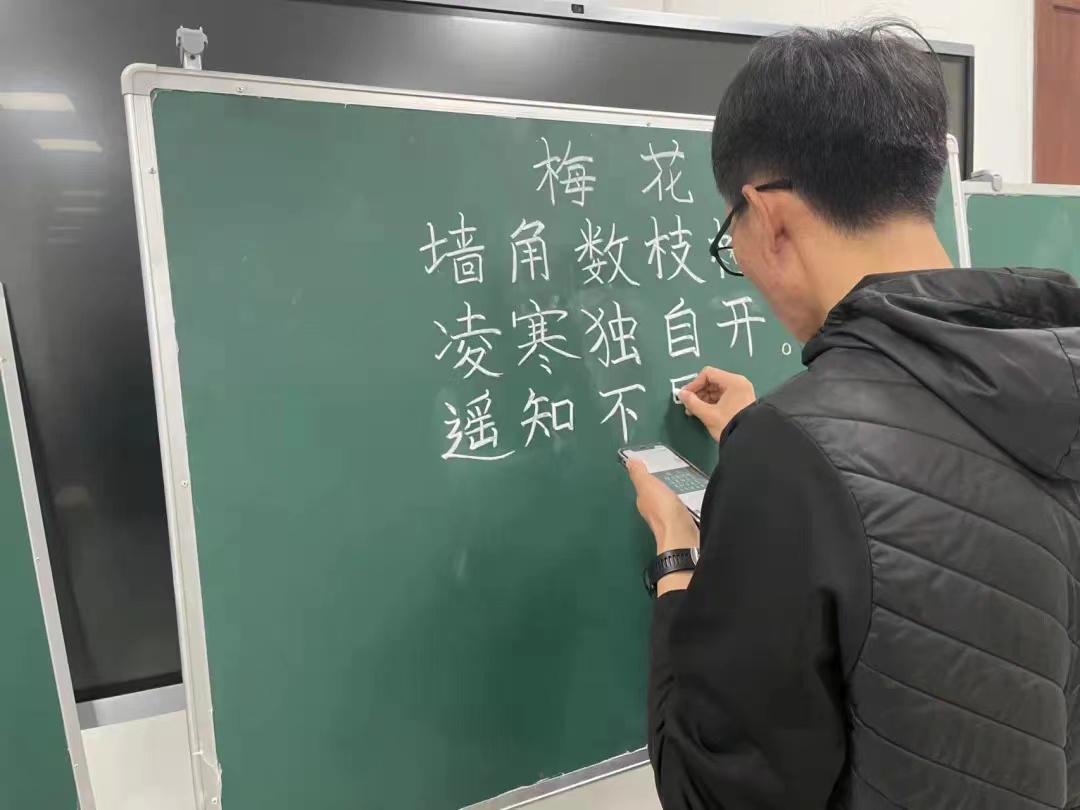 梅花
墙角数枝
凌寒独自开。
遥知不